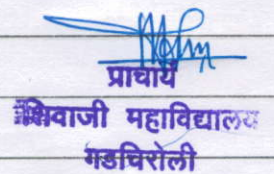 प्राचार्य
शिवाजी महाविद्यालय
गडचिरोली